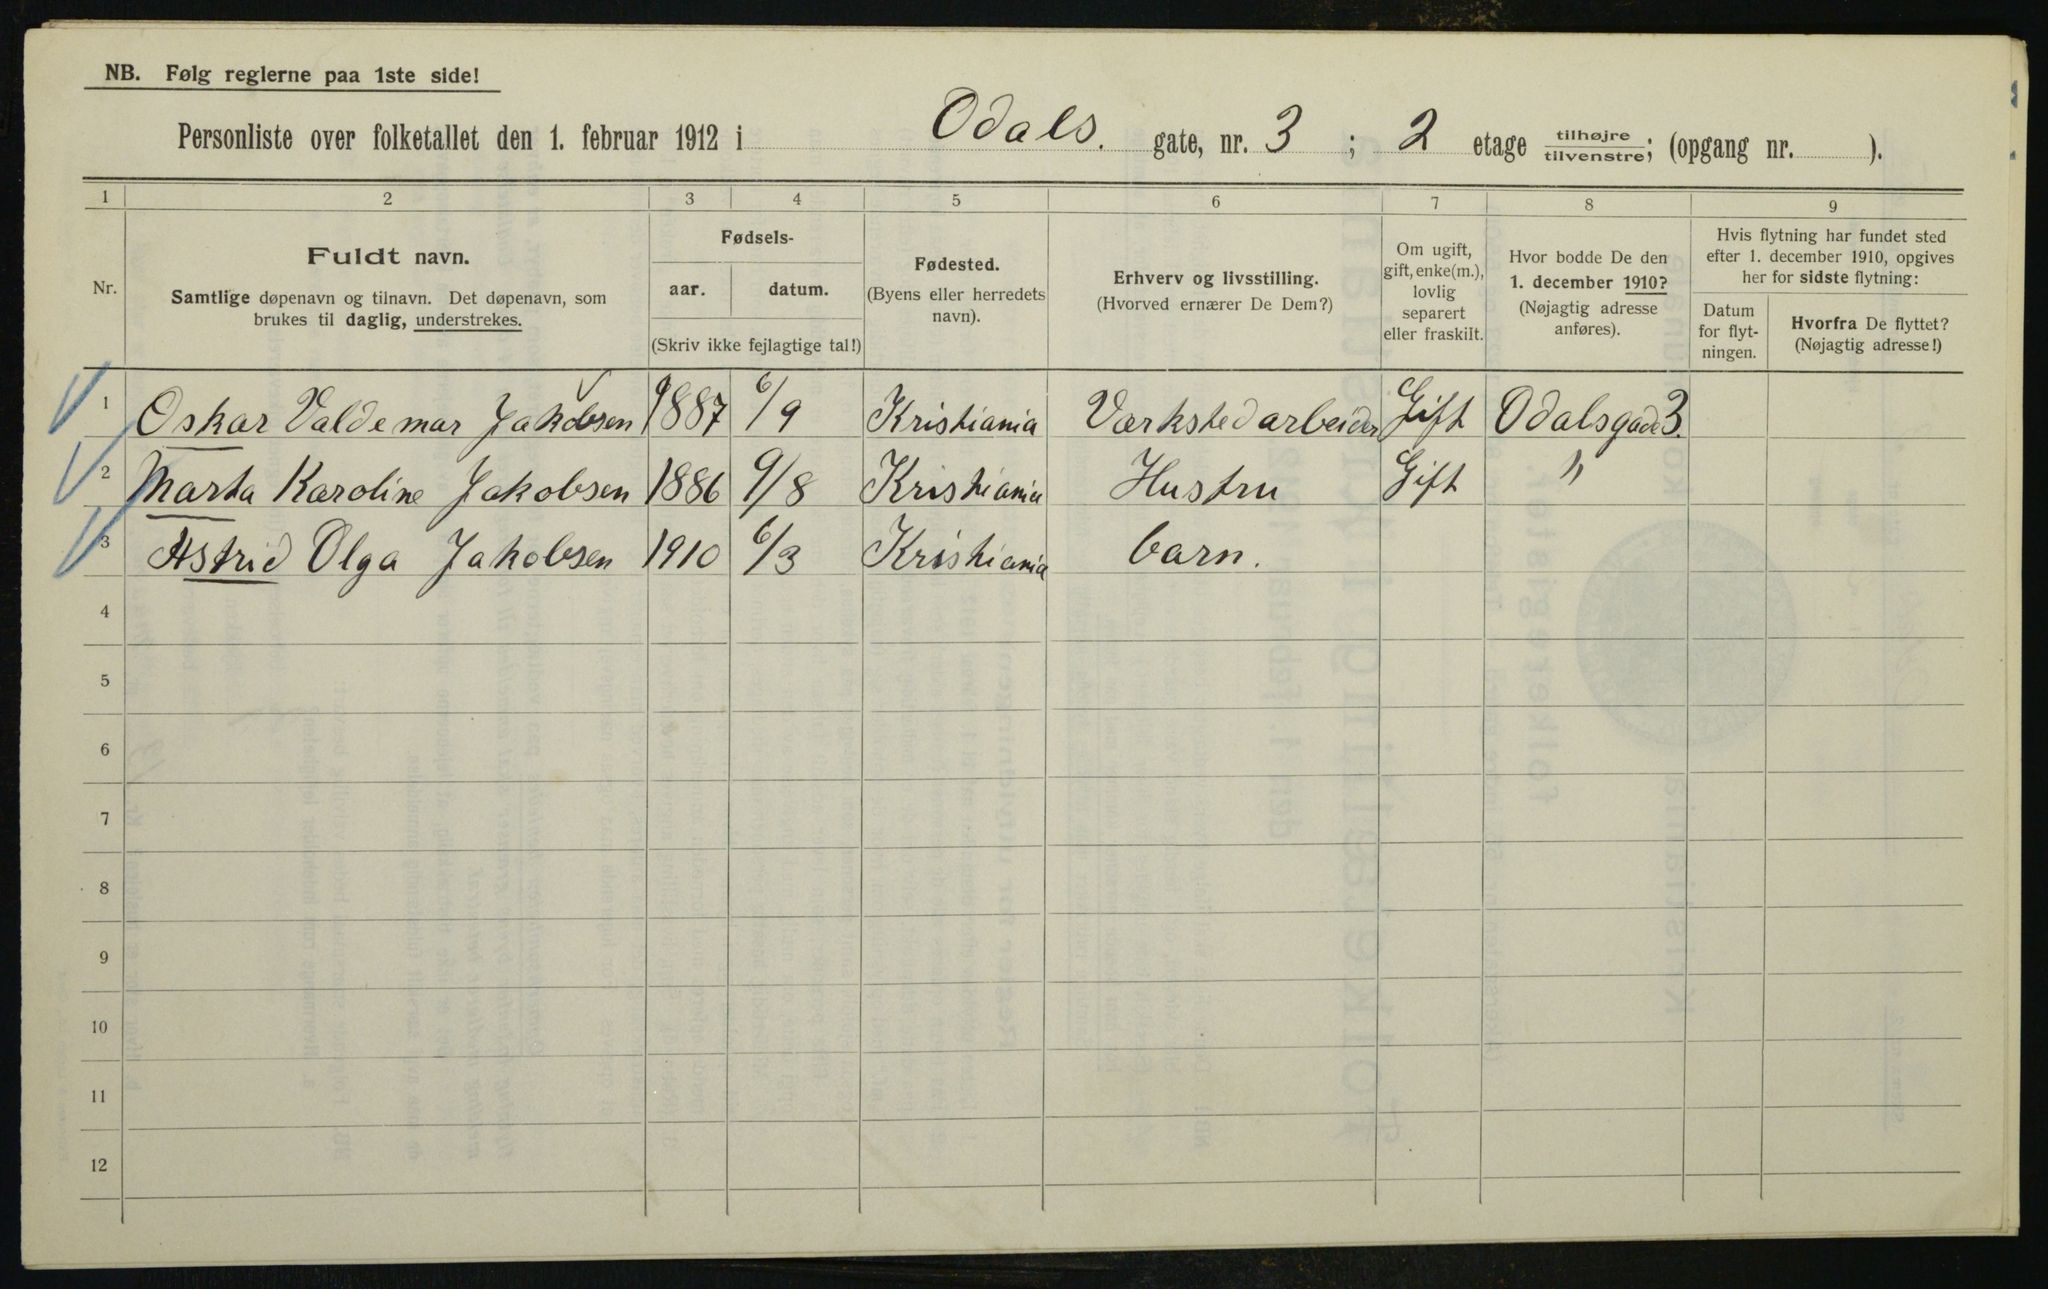 NB. Følg reglerne paa 1ste side!
Personliste over folketallet den 1. februar 1912 i Odals. gate, nr. 3 ; 2 etage tilhøjre/tilvenstre; (opgang nr. ).
1 2 3 4 5 6 7 8 9
Nr.
Fuldt navn.
Samtlige døpenavn og tilnavn. Det døpenavn, som
brukes til daglig, understrekes.
Fødsels-
aar. datum.
(Skriv ikke fejlagtige tal!)
Fødested.
(Byens eller herredets
navn).
Erhverv og livsstilling.
(Hvorved ernærer De Dem?)
Om ugift,
gift, enke(m.),
lovlig
separert
eller fraskilt.
Hvor bodde De den
1. december 1910?
(Nøjagtig adresse
anføres).
Hvis flytning har fundet sted
efter 1. december 1910, opgives
her for sidste flytning:
Datum
for flyt-
ningen.
Hvorfra De flyttet?
(Nøjagtig adresse!)
1 Oskar Valdemar Jakobsen 1887 6/9 Kristiania Værkstedarbeider Gift Odalsgade 3.
2 Marta Karoline Jakobsen 1886 9/8 Kristiania Hustru Gift "
3 Astrid Olga Jakobsen 1910 6/3 Kristiania barn.
4
5
6
7
8
9
10
11
12